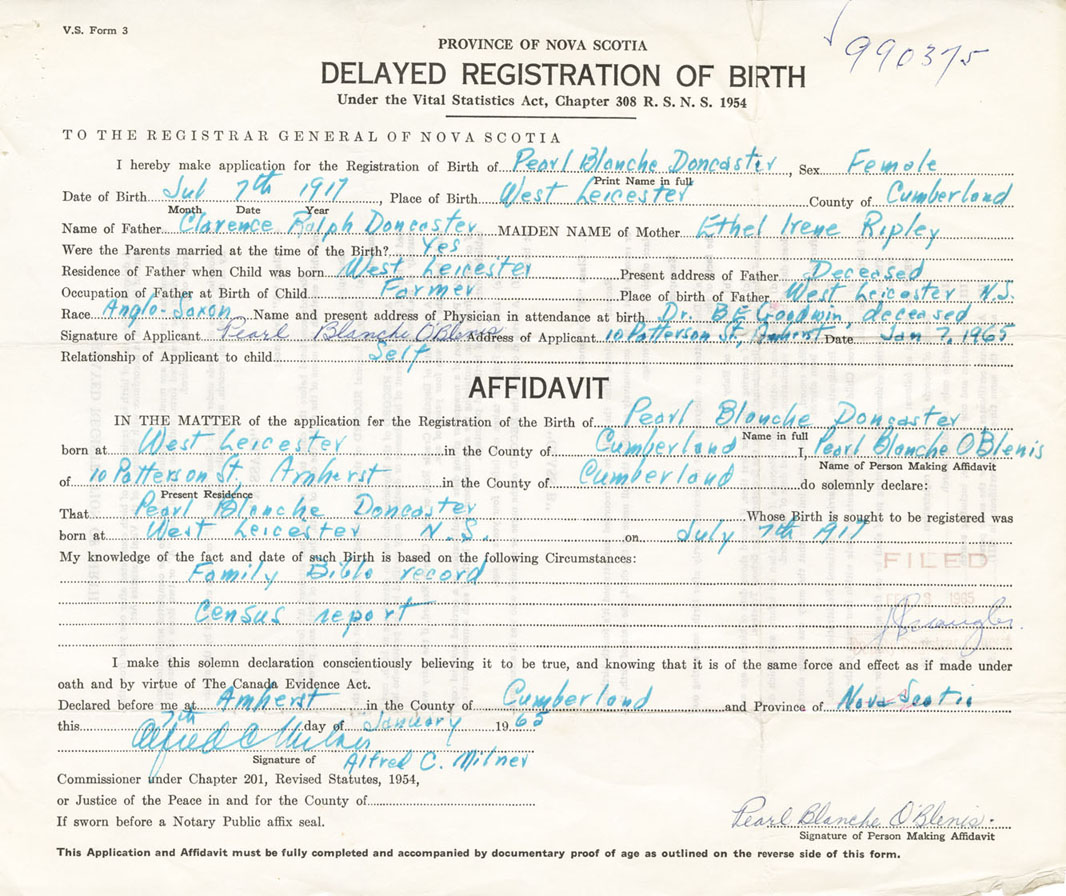 V.S. Form 3
990375
PROVINCE OF NOVA SCOTIA
DELAYED REGISTRATION OF BIRTH
Under the Vital Statistics Act, Chapter 308 R. S. N. S. 1954
TO THE REGISTRAR GENERAL OF NOVA SCOTIA
I hereby make application for the Registration of Birth of Pearl Blanche Doncaster, Sex Female
Print Name in full
Date of Birth Jul 7th 1917, Place of Birth West Leicester County of Cumberland
Month Date Year
Name of Father Clarence Ralph Doncaster MAIDEN NAME of Mother Ethel Irene Ripley
Were the Parents married at the time of the Birth? Yes
Residence of Father when Child was born West Leicester Present address of Father Deceased
Occupation of Father at Birth of Child Farmer Place of birth of Father West Leicester N.S.
Race Anglo-Saxon Name and present address of Physician in attendance at birth Dr. B E Goodwin, deceased
Signature of Applicant Pearl Blanche O'Blenis Address of Applicant 10 Patterson St, Amherst Date Jan 7, 1965
Relationship of Applicant to child Self
AFFIDAVIT
IN THE MATTER of the application for the Registration of the Birth of Pearl Blanche Doncaster
Name in full
born at West Leicester in the County of Cumberland I, Pearl Blanche O'Blenis
Name of Person Making Affidavit
of 10 Patterson St, Amherst in the County of Cumberland do solemnly declare:
Present Residence
That Pearl Blanche Doncaster Whose Birth is sought to be registered was
born at West Leicester N.S. on July 7th 1917
My knowledge of the fact and date of such Birth is based on the following Circumstances:
FILED
Family Bible record
1965
Census report
I make this solemn declaration conscientiously believing it to be true, and knowing that it is of the same force and effect as if made under
oath and by virtue of The Canada Evidence Act.
Declared before me at Amherst in the County of Cumberland and Province of Nova Scotia
this 7th day of January 1965
Alfred C Milner
Signature of Alfred C. Milner
Commissioner under Chapter 201, Revised Statutes, 1954,
or Justice of the Peace in and for the County of
If sworn before a Notary Public affix seal.
Pearl Blanche O'Blenis.
Signature of Person Making Affidavit
This Application and Affidavit must be fully completed and accompanied by documentary proof of age as outlined on the reverse side of this form.